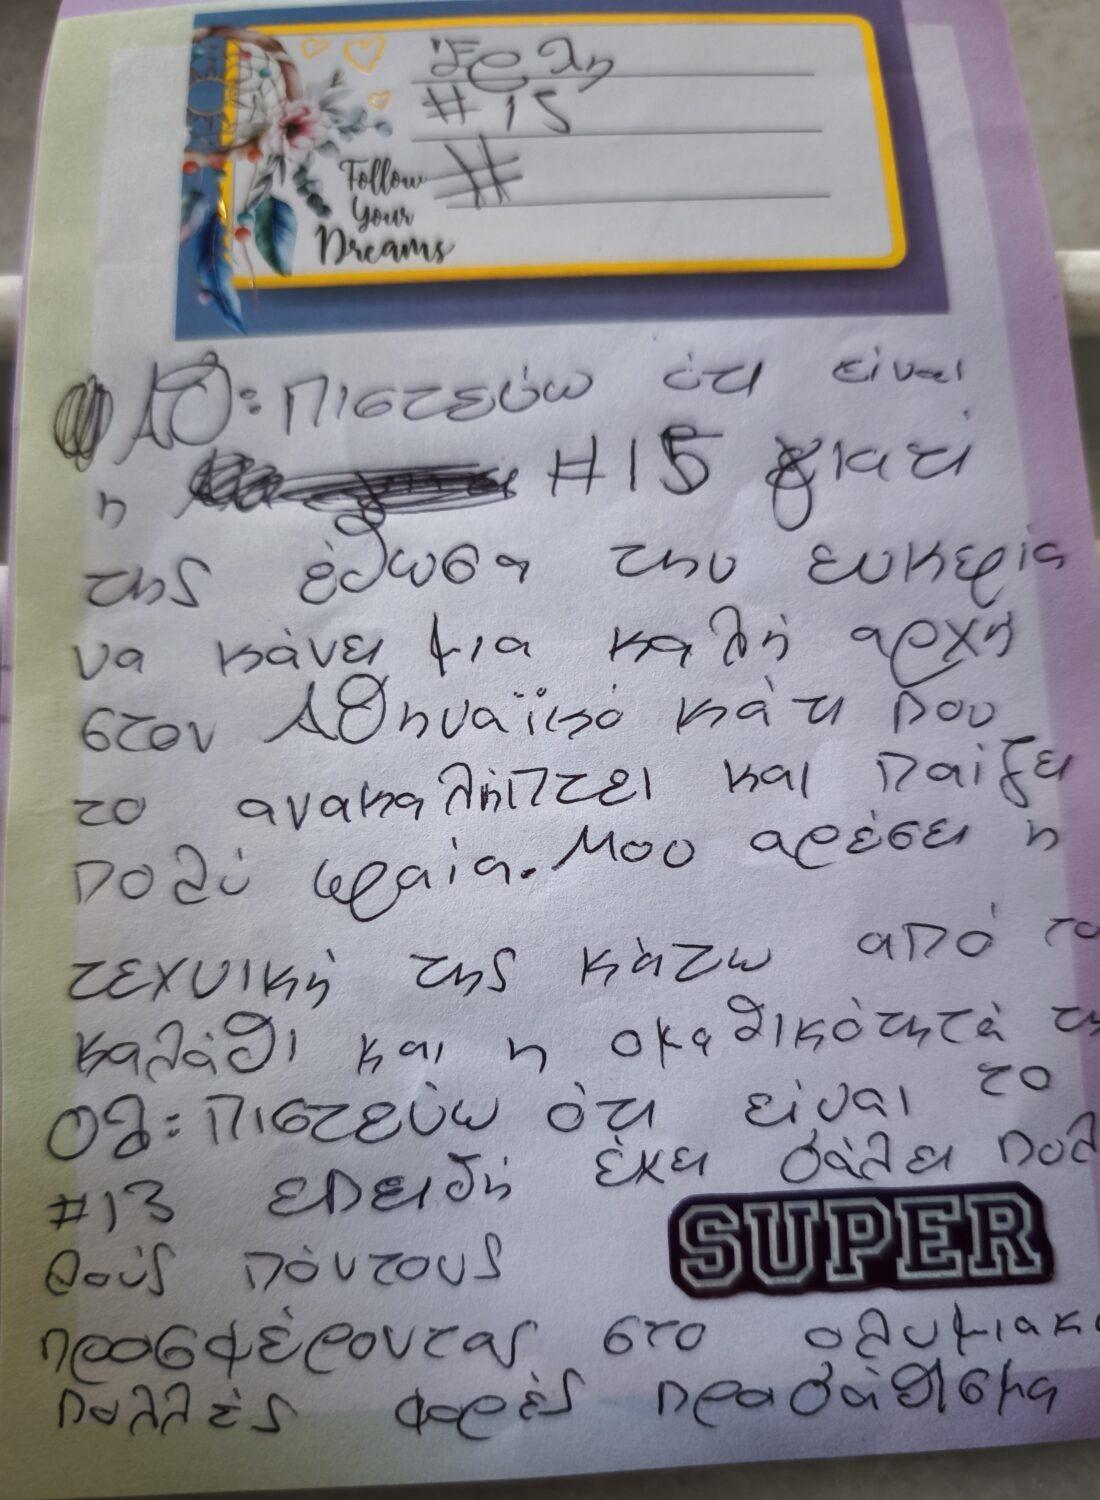 Έρλη
#15
#
Follow
Your
Dreams
ΑΘ: Πιστεύω ότι είναι
η #15 γιατί
της έδωσα την ευκερία
να κάνει μια καλή αρχή
στον Αθηναϊκό κάτι που
το ανακαλήπτει και παίζει
πολύ ωραία. Μου αρέσει η
τεχνική της κάτω από το
καλάθι και η ομαθικότητά τη
Ολ: Πιστεύω ότι είναι το
#13 επειδή έχει βάλει πολ
λούς πόντους
SUPER
προσφέροντας στο ολυμιακο
πολλές φορές πραβάθισμα